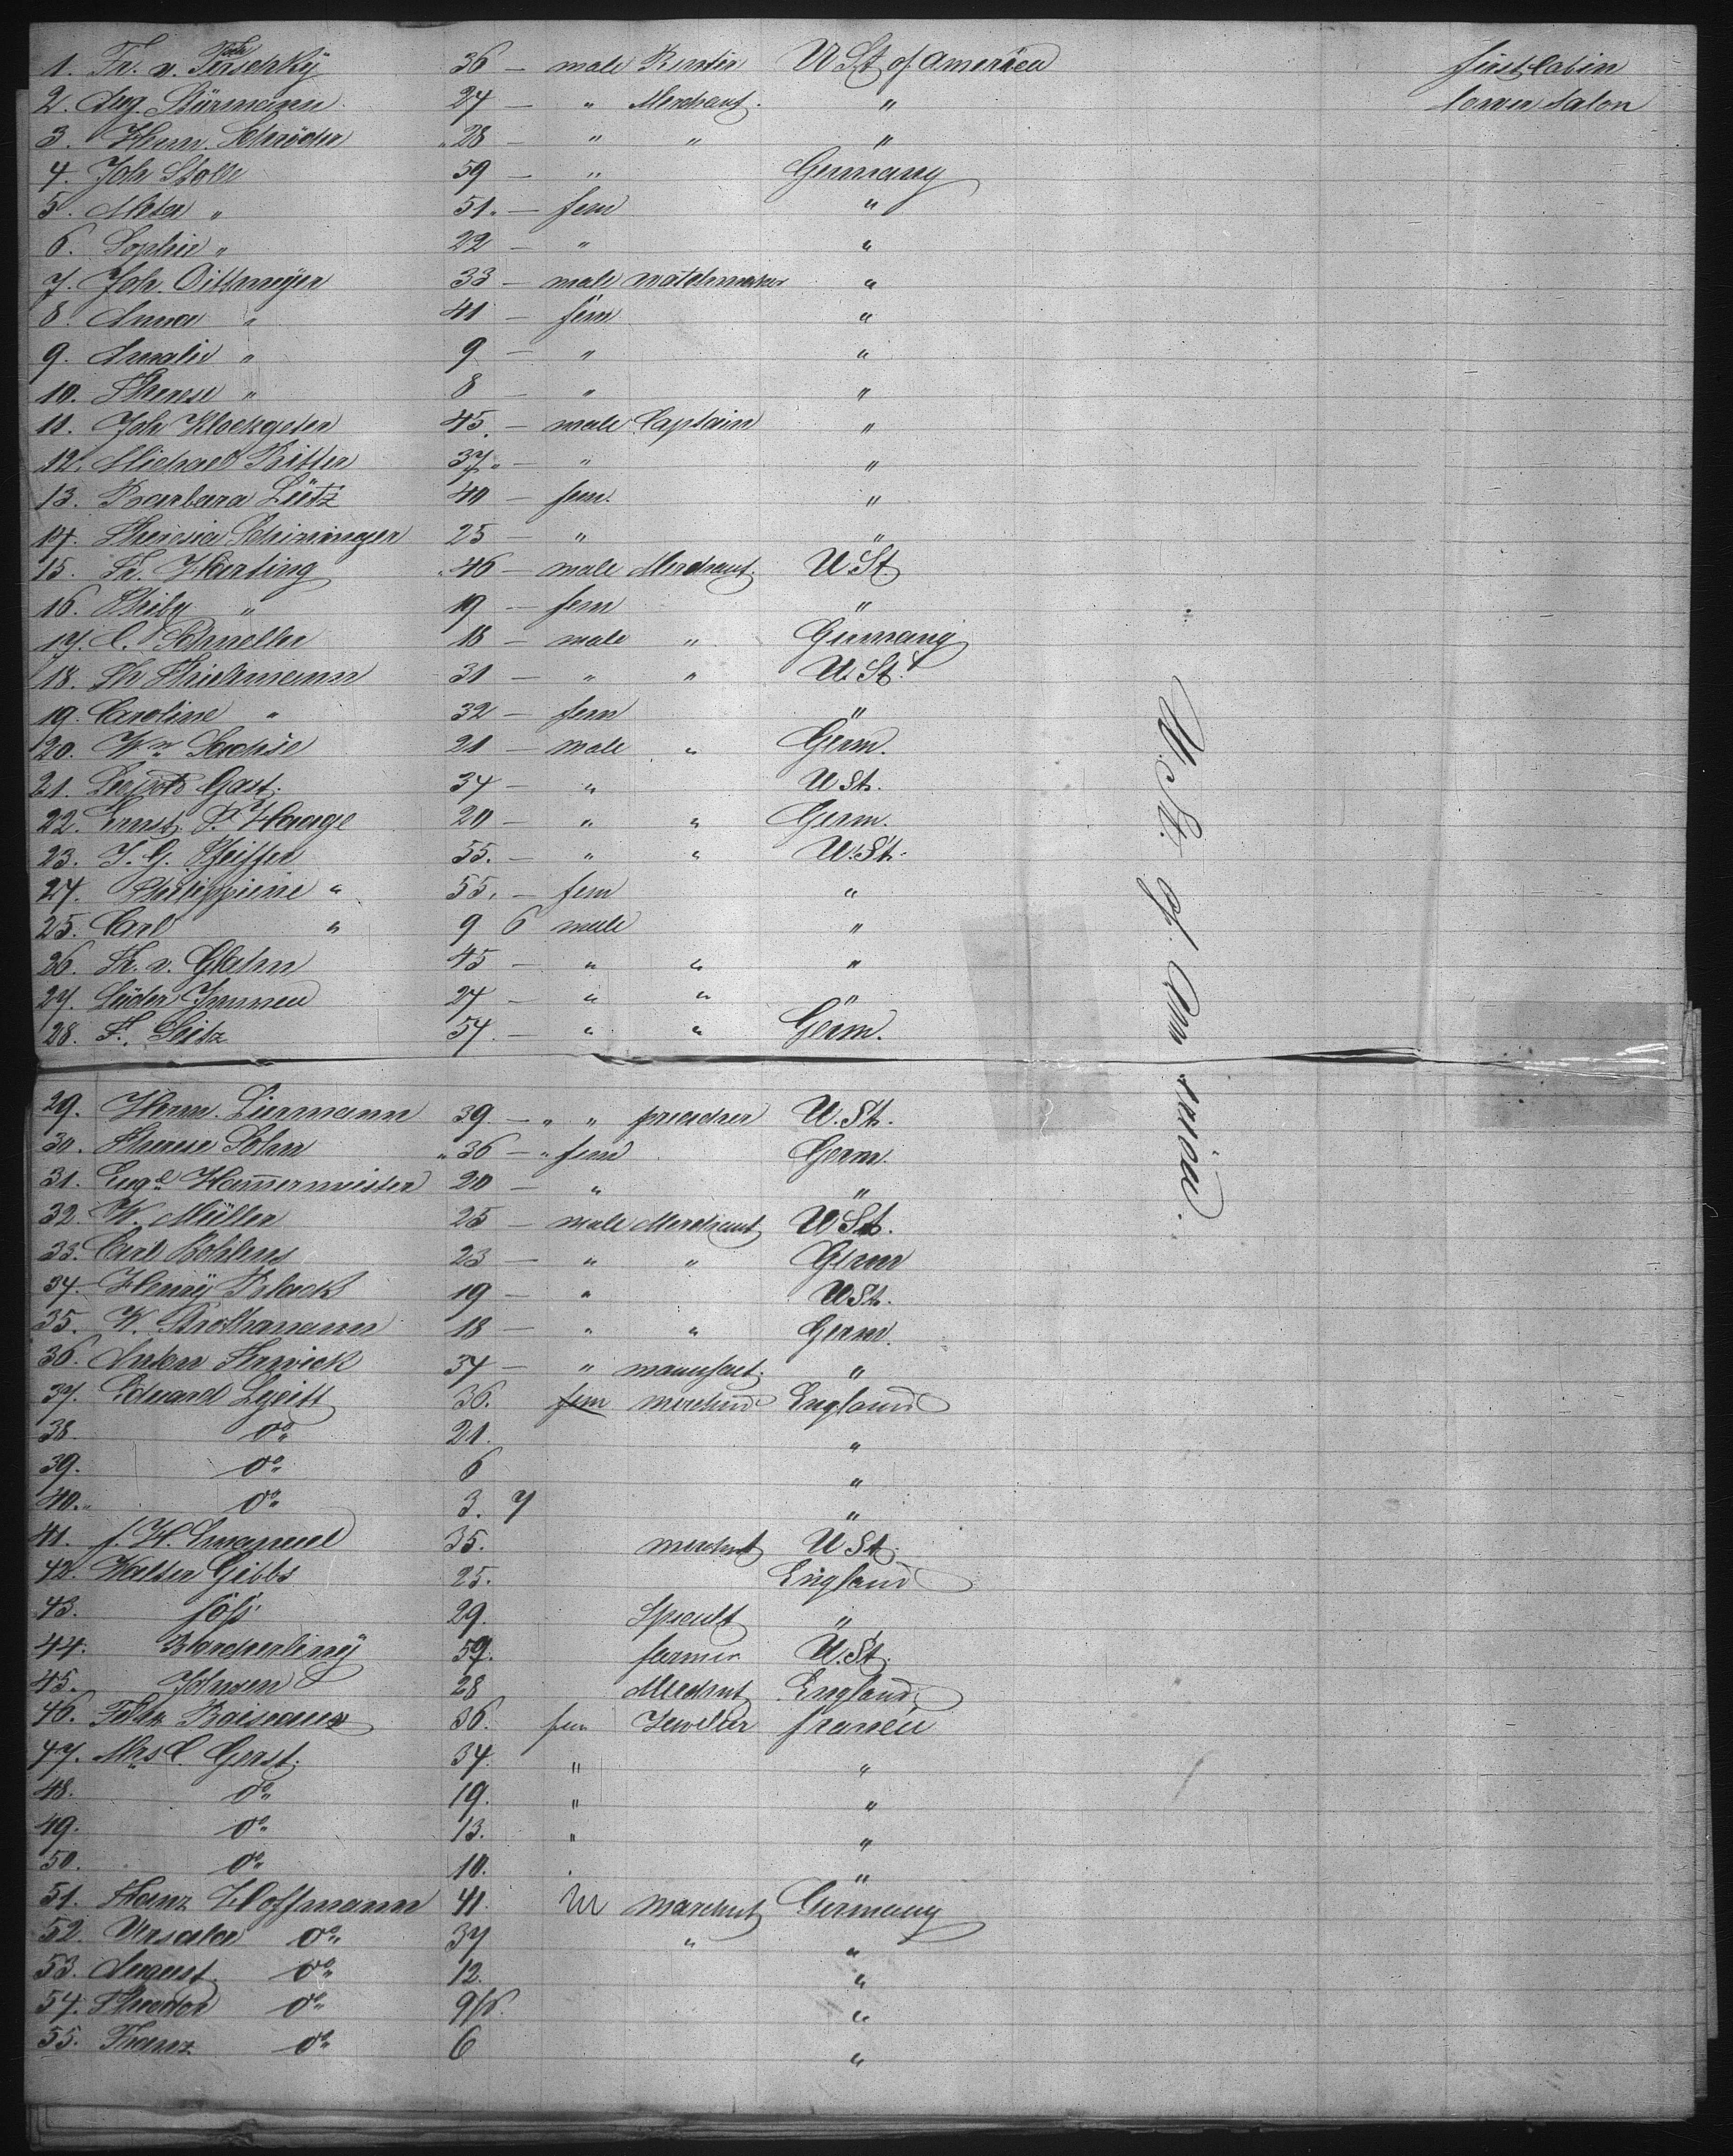 1. Fr. v. 36 — male Rentier U St of America first Cabin
2. Aug. Stürmann 24 — " Merchant. " lower Salon
3. Herm. Schröder 28 — " " "
4. Joh Stoll 59 — " Germany
5. Meta " 51. — fem "
6. Sophie " 22 — " "
7. Joh. Dittmeÿer 33 — male watchmaker "
8. Anna " 41 — fem "
9. Amalie " 9 — " "
10. Therese " 8 — " "
11. Joh Klockgeter 45. — male Captain "
12. Michael Ritter 37 — " "
13. Barbara Lütz 40 — fem. "
14. Theresia 25 — " "
15. Fr. Harting 46 — male Merchant. U St
16. " 19 — fem "
17. C. Schneller 18 — male " Germany
18. Th Thielemann 31 — " " U. St.
19. Caroline " 32 — fem "
20. Wm Sachse 21 — male " Germ.
21. Gast. 34 — " U St.
22. Ernst. P. Haage 20 — " " Germ.
23. J. G. Pfeiffer 55. — " " U. St.
24. Philippine " 55. — fem "
25. Carl " 9 6 male "
26. v. Glahn 45 — " " "
27. Lüder Immen 24 — " " "
28. F. Seitz 54. — " " Germ.
U. St. of America.
29. Herm. Liermann 39. — " " preacher U. St.
30. Therese Sohn " 36 — " fem Germ.
31. Hammermeister 20 — " "
32. W. Müller 25 — male Merchant U St.
33. Carl Bohlens 23 — " " Germ
34. Henrÿ Black 19 — " U St.
35. W. Strothmann 18 — " " Germ.
36. Anton 34 — " manufact. "
37. Eduard 36. fem merchant England
38. do 21. "
39. do 6 "
40. do 3. 7 "
41. J. H. Emanuel 35. merchant U St.
42. Walter Gibbs 25. England
43. 29. "
44. 59. farmer U. St.
45. Johnson 28 Merchant England
46. Felix 36. fem Jewelier france
47. Mrs C. Gerst. 34. " "
48. do 19. " "
49. do 13. " "
50. do 10. . "
51. Franz Hoffmann 41. M marchant Germany
52. Ursula do 37 " "
53. August. do 12. "
54. Theodor do 9 "
55. Franz do 6 "